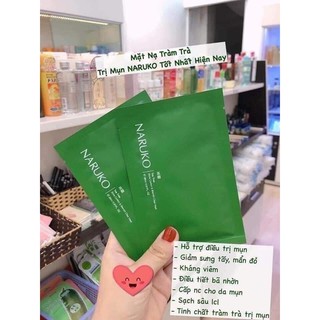 Mặt Nạ Tràm Trà
Trị Mụn NARUKO Tốt Nhất Hiện Nay
NARUKO
NARUKO
- Hỗ trợ điều trị mụn
- Giảm sưng tấy, mẩn đỏ
- Kháng viêm
- Điều tiết bã nhờn
- Cấp nc cho da mụn
- Sạch sâu lcl
- Tinh chất tràm trà trị mụn